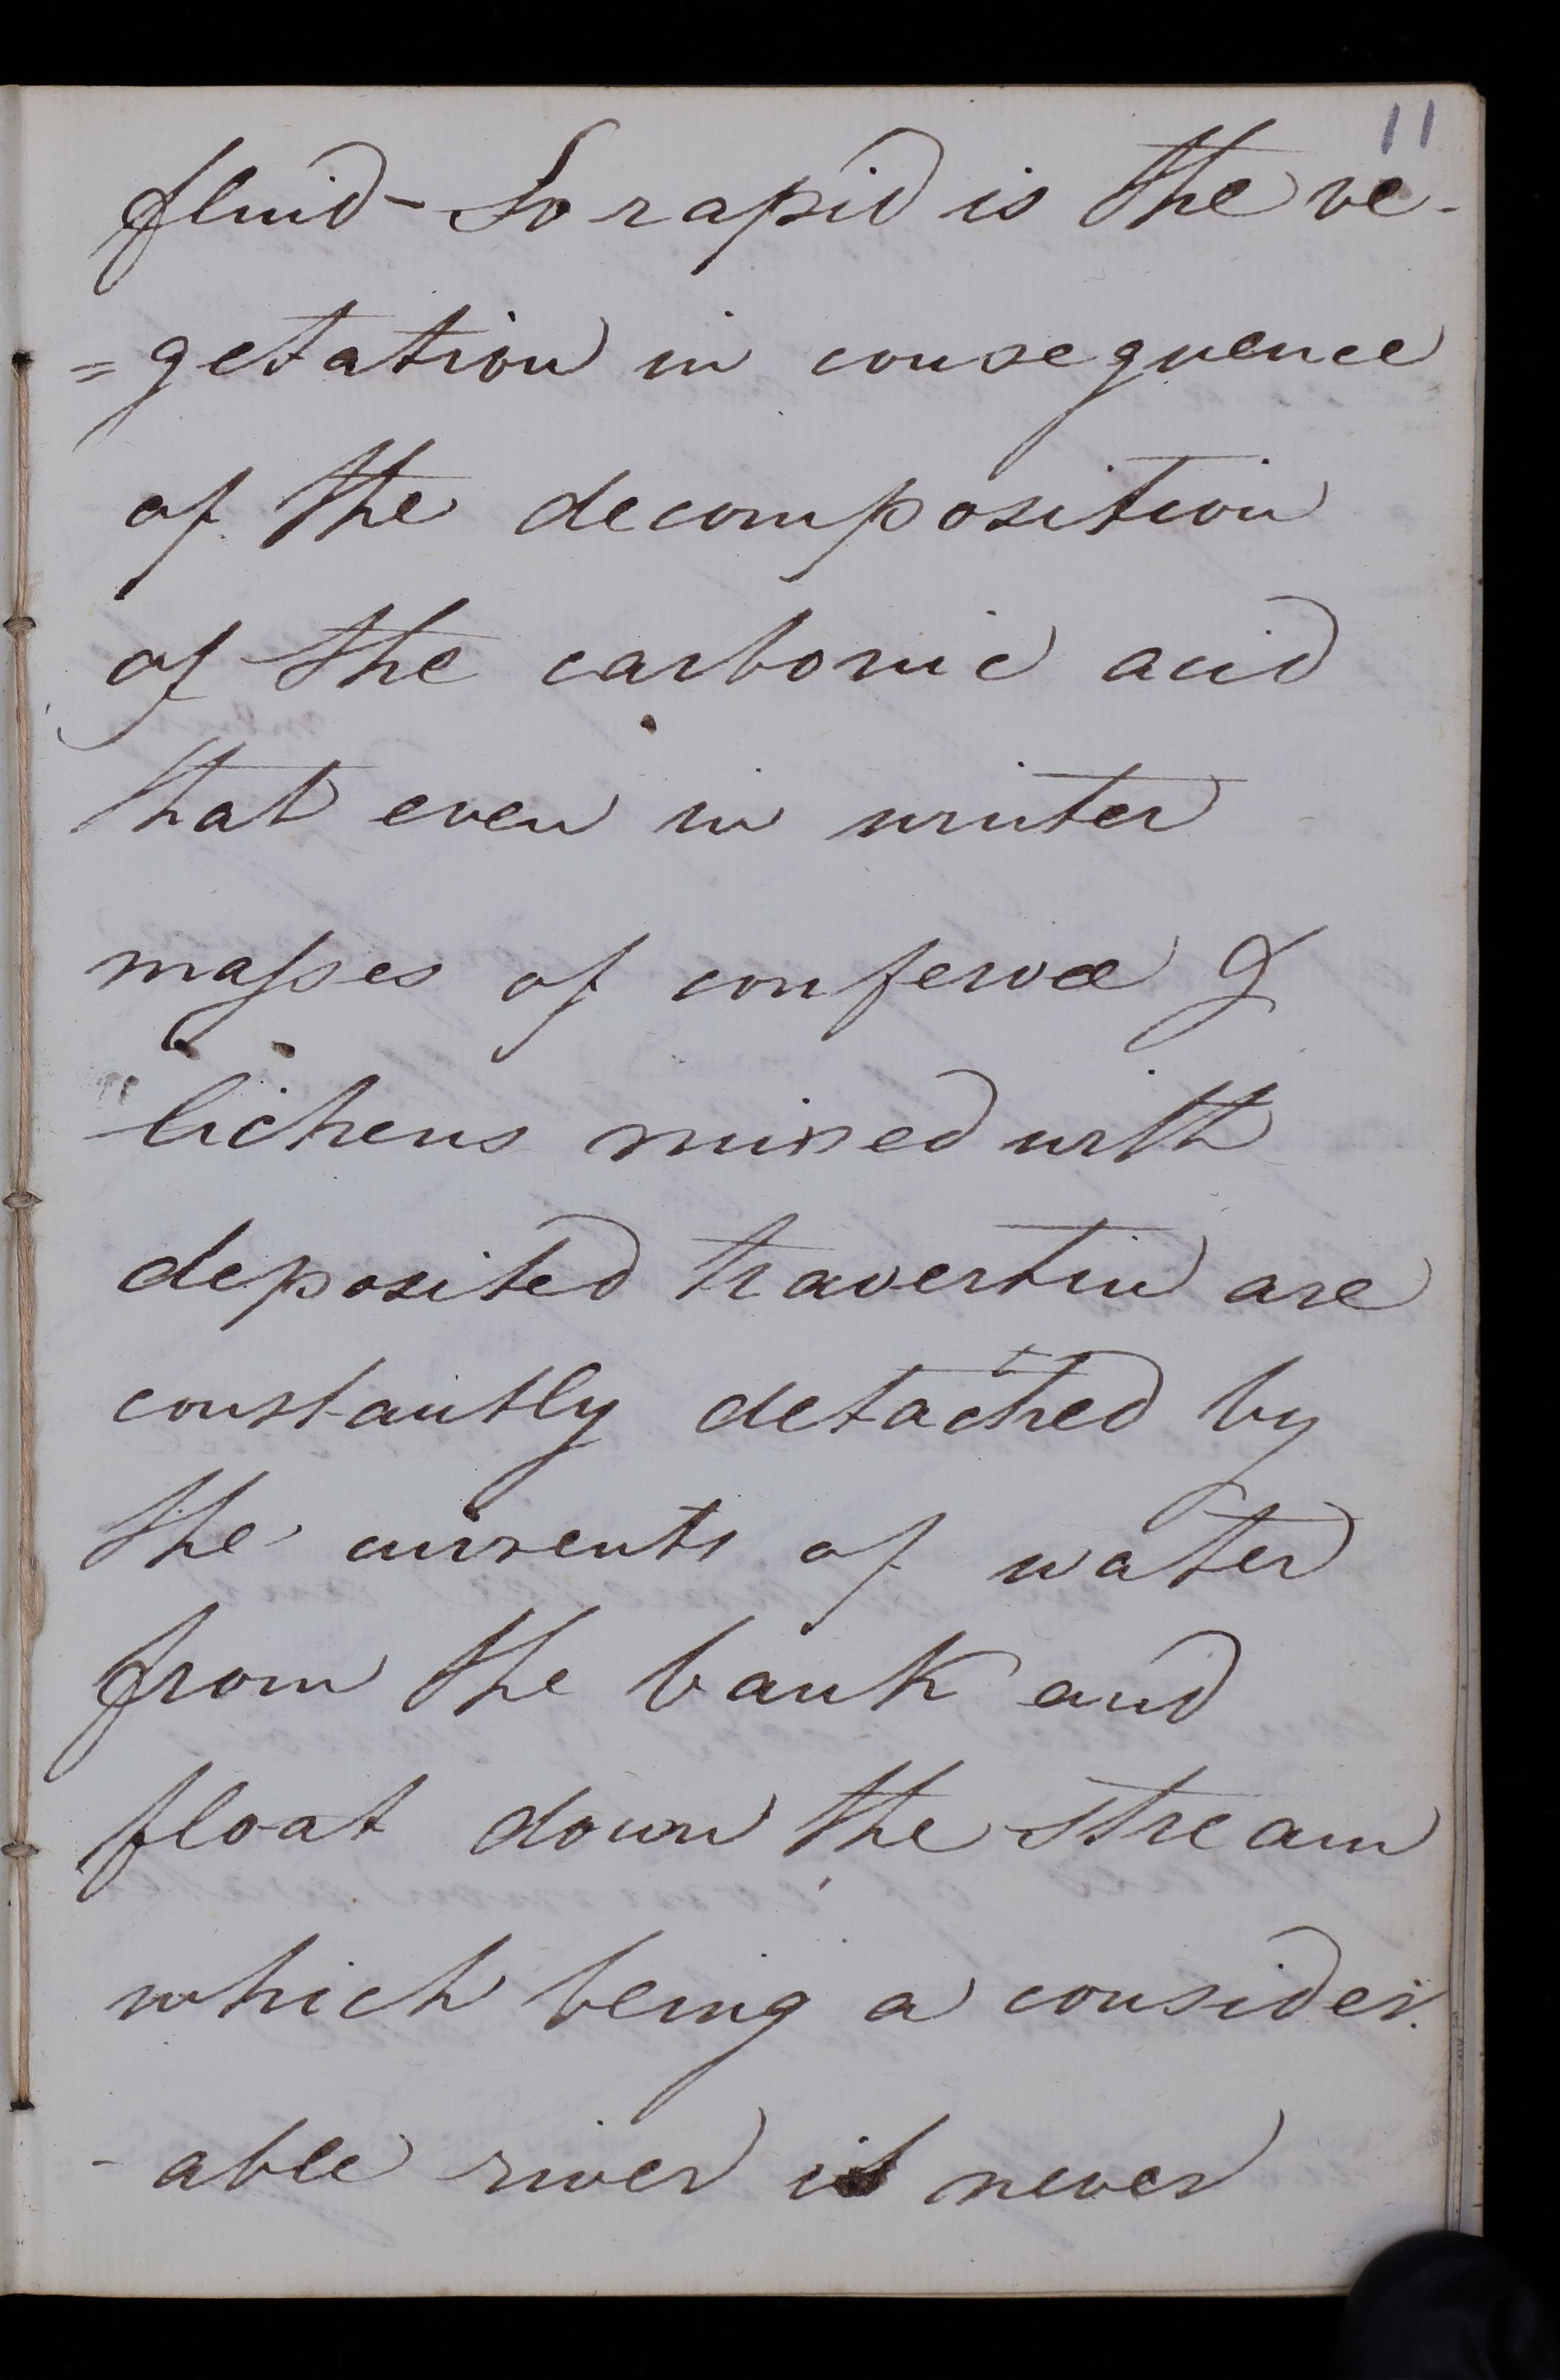 11
fluid - So rapid is the ve-
=getation in consequence
of the decomposition
of the carbonic acid
that even in winter
maſses of confervæ &
lichens mixed with
deposited travertin are
constantly detached by
the currents of water
from the bank and
float down the stream
which being a consider.
-able river is never